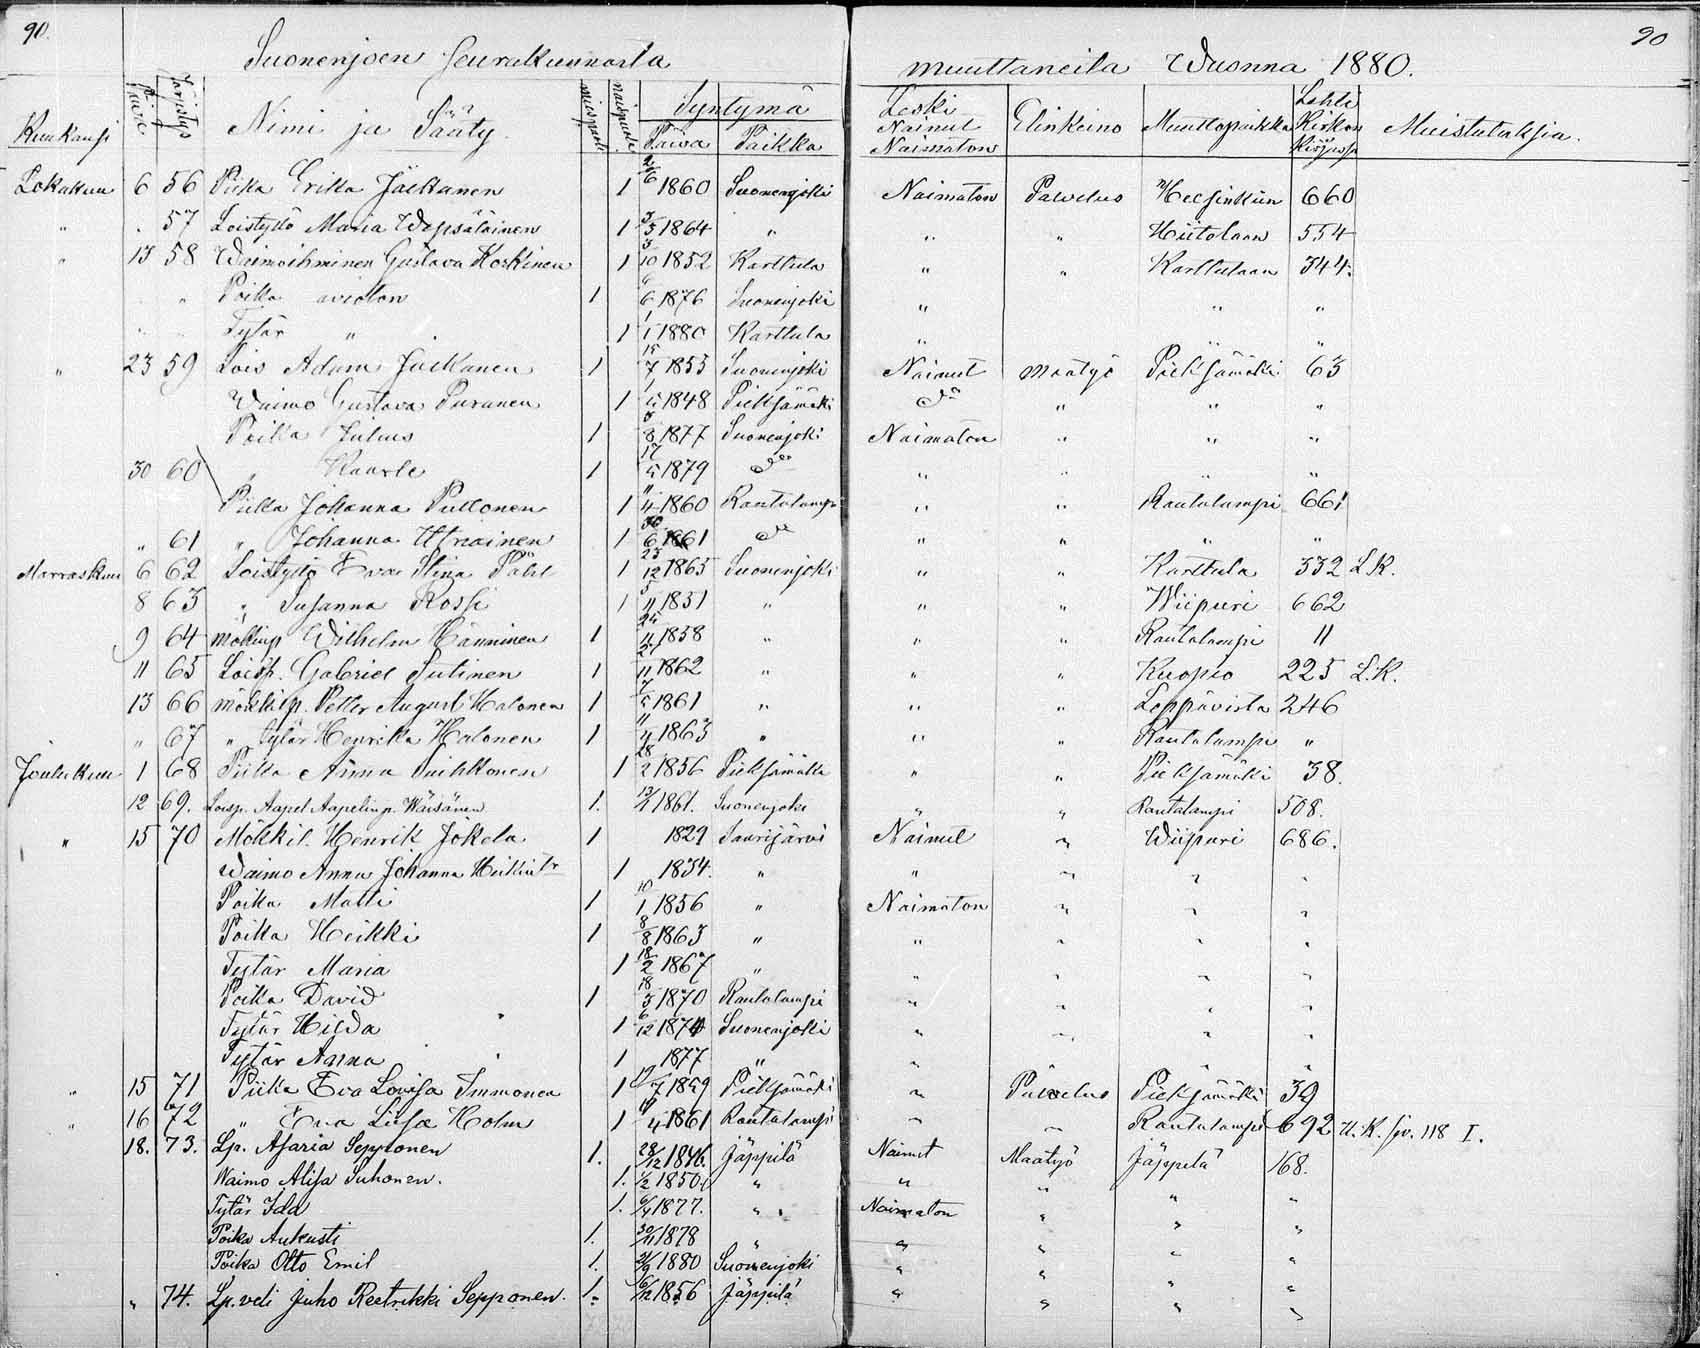 90. 90
Suonenjoen seurakunnasta muuttaneita Wuonna 1880.
Kuukausi Päivä Järjestys Nimi ja Sääty miespuoli naispuoli Syntymä Päiwä Paikka Leski Nainut Naimaton Elinkeino Muuttopaikka Lehti Kirkon kirjassa Muistutuksia.
Lokakuu 6 56 Piika Erika Jäskanen 1 2/6 1860 Suonenjoki Naimaton Palvelus Helsinkiin 660
" . 57 Loistyttö Maria Wepsäläinen 1 3/5 1864 " " " Hiitolaan 554
" 13 58 Waimoihminen Gustava Koskinen 1 3/10 1852 Karttula " " Karttulaan 344.
" Poika avioton 1 6/6 1876 Suonenjoki " " "
Tytär " 1 1/1 1880 Karttula " " "
" 23 59 Lois Adam Jäskanen 1 15/7 1853 Suonenjoki Nainut Maatyö Pieksämäki 63
Waimo Gustava Puranen 1 1848 Pieksämäki do " " "
Poika Julius 1 8 1877 Suonenjoki Naimaton " " "
30 60 " Kaarle 1 17/5 1879 do " " " "
Piika Johanna Puttonen 1 11/4 1860 Rautalampi " " Rautalampi 661
" 61 " Johanna Utriainen 1 30/6 1861 do " " " "
Marraskuu 6 62 Loistyttö Eva Stina Pähl 1 23/12 1863 Suonenjoki " " Karttula 332 L.K.
8 63 " Susanna Rossi 1 5/11 1851 " " " Wiipuri 662
9 64 mökinp Wilhelm Hänninen 1 24/11 1858 " " " Rautalampi 11
11 65 Loisp. Gabriel Sutinen 1 27/11 1862 " " " Kuopio 225 L.K.
13 66 mökkilp. Petter August Halonen 1 7/5 1861 " " " Leppävirta 246
" 67 " tytär Henrika Halonen 1 11/4 1863 " " " Rautalampi "
Joulukuu 1 68 Piika Anna Puikkonen 1 28/2 1856 Pieksämäki " " Pieksämäki 38.
12 69. Loisp. Aapel Aapelinp. Wäisänen 1. 1861. Suonenjoki " " Rautalampi 508.
" 15 70 Mökkil. Henrik Jokela 1 1829 Saarijärvi Nainut " Wiipuri 686.
Waimo Anna Johanna Heikint. 1 1834. " " " " "
Poika Matti 1 10/1 1856 " Naimaton " " "
Poika Heikki 1 8/8 1863 " " " " "
Tytär Maria 1 18/2 1867 " " " " "
Poika David 1 18/3 1870 Rautalampi " " " "
Tytär Hilda 1 6/12 1874 Suonenjoki " " " "
Tytär Anna 1 1877 " " " " "
" 15 71 Piika Eva Lovisa Immonen 1 17/7 1859 Pieksämäki " Palvelus Pieksämäki 39
" 16 72 " Eva Liisa Holm 1 1861 Rautalampi " " Rautalampi 692 U.K. siv. 118 I.
18. 73. Lp. Asaria Sepponen 1. 28/12 1846. Jäppilä Nainut Maatyö Jäppilä 168.
Waimo Alisa Suhonen. 1. 1/2 1850 " " " " "
Tytär Ida 1. 6/4 1877. " Naimaton " " "
Poika Aukusti 1. 30/11 1878 " " " " "
Poika Otto Emil 1. 21/9 1880 Suonenjoki " " " "
" 74. Lp. veli Juho Reetrikki Sepponen. 1. 6/12 1856 Jäppilä " " " "